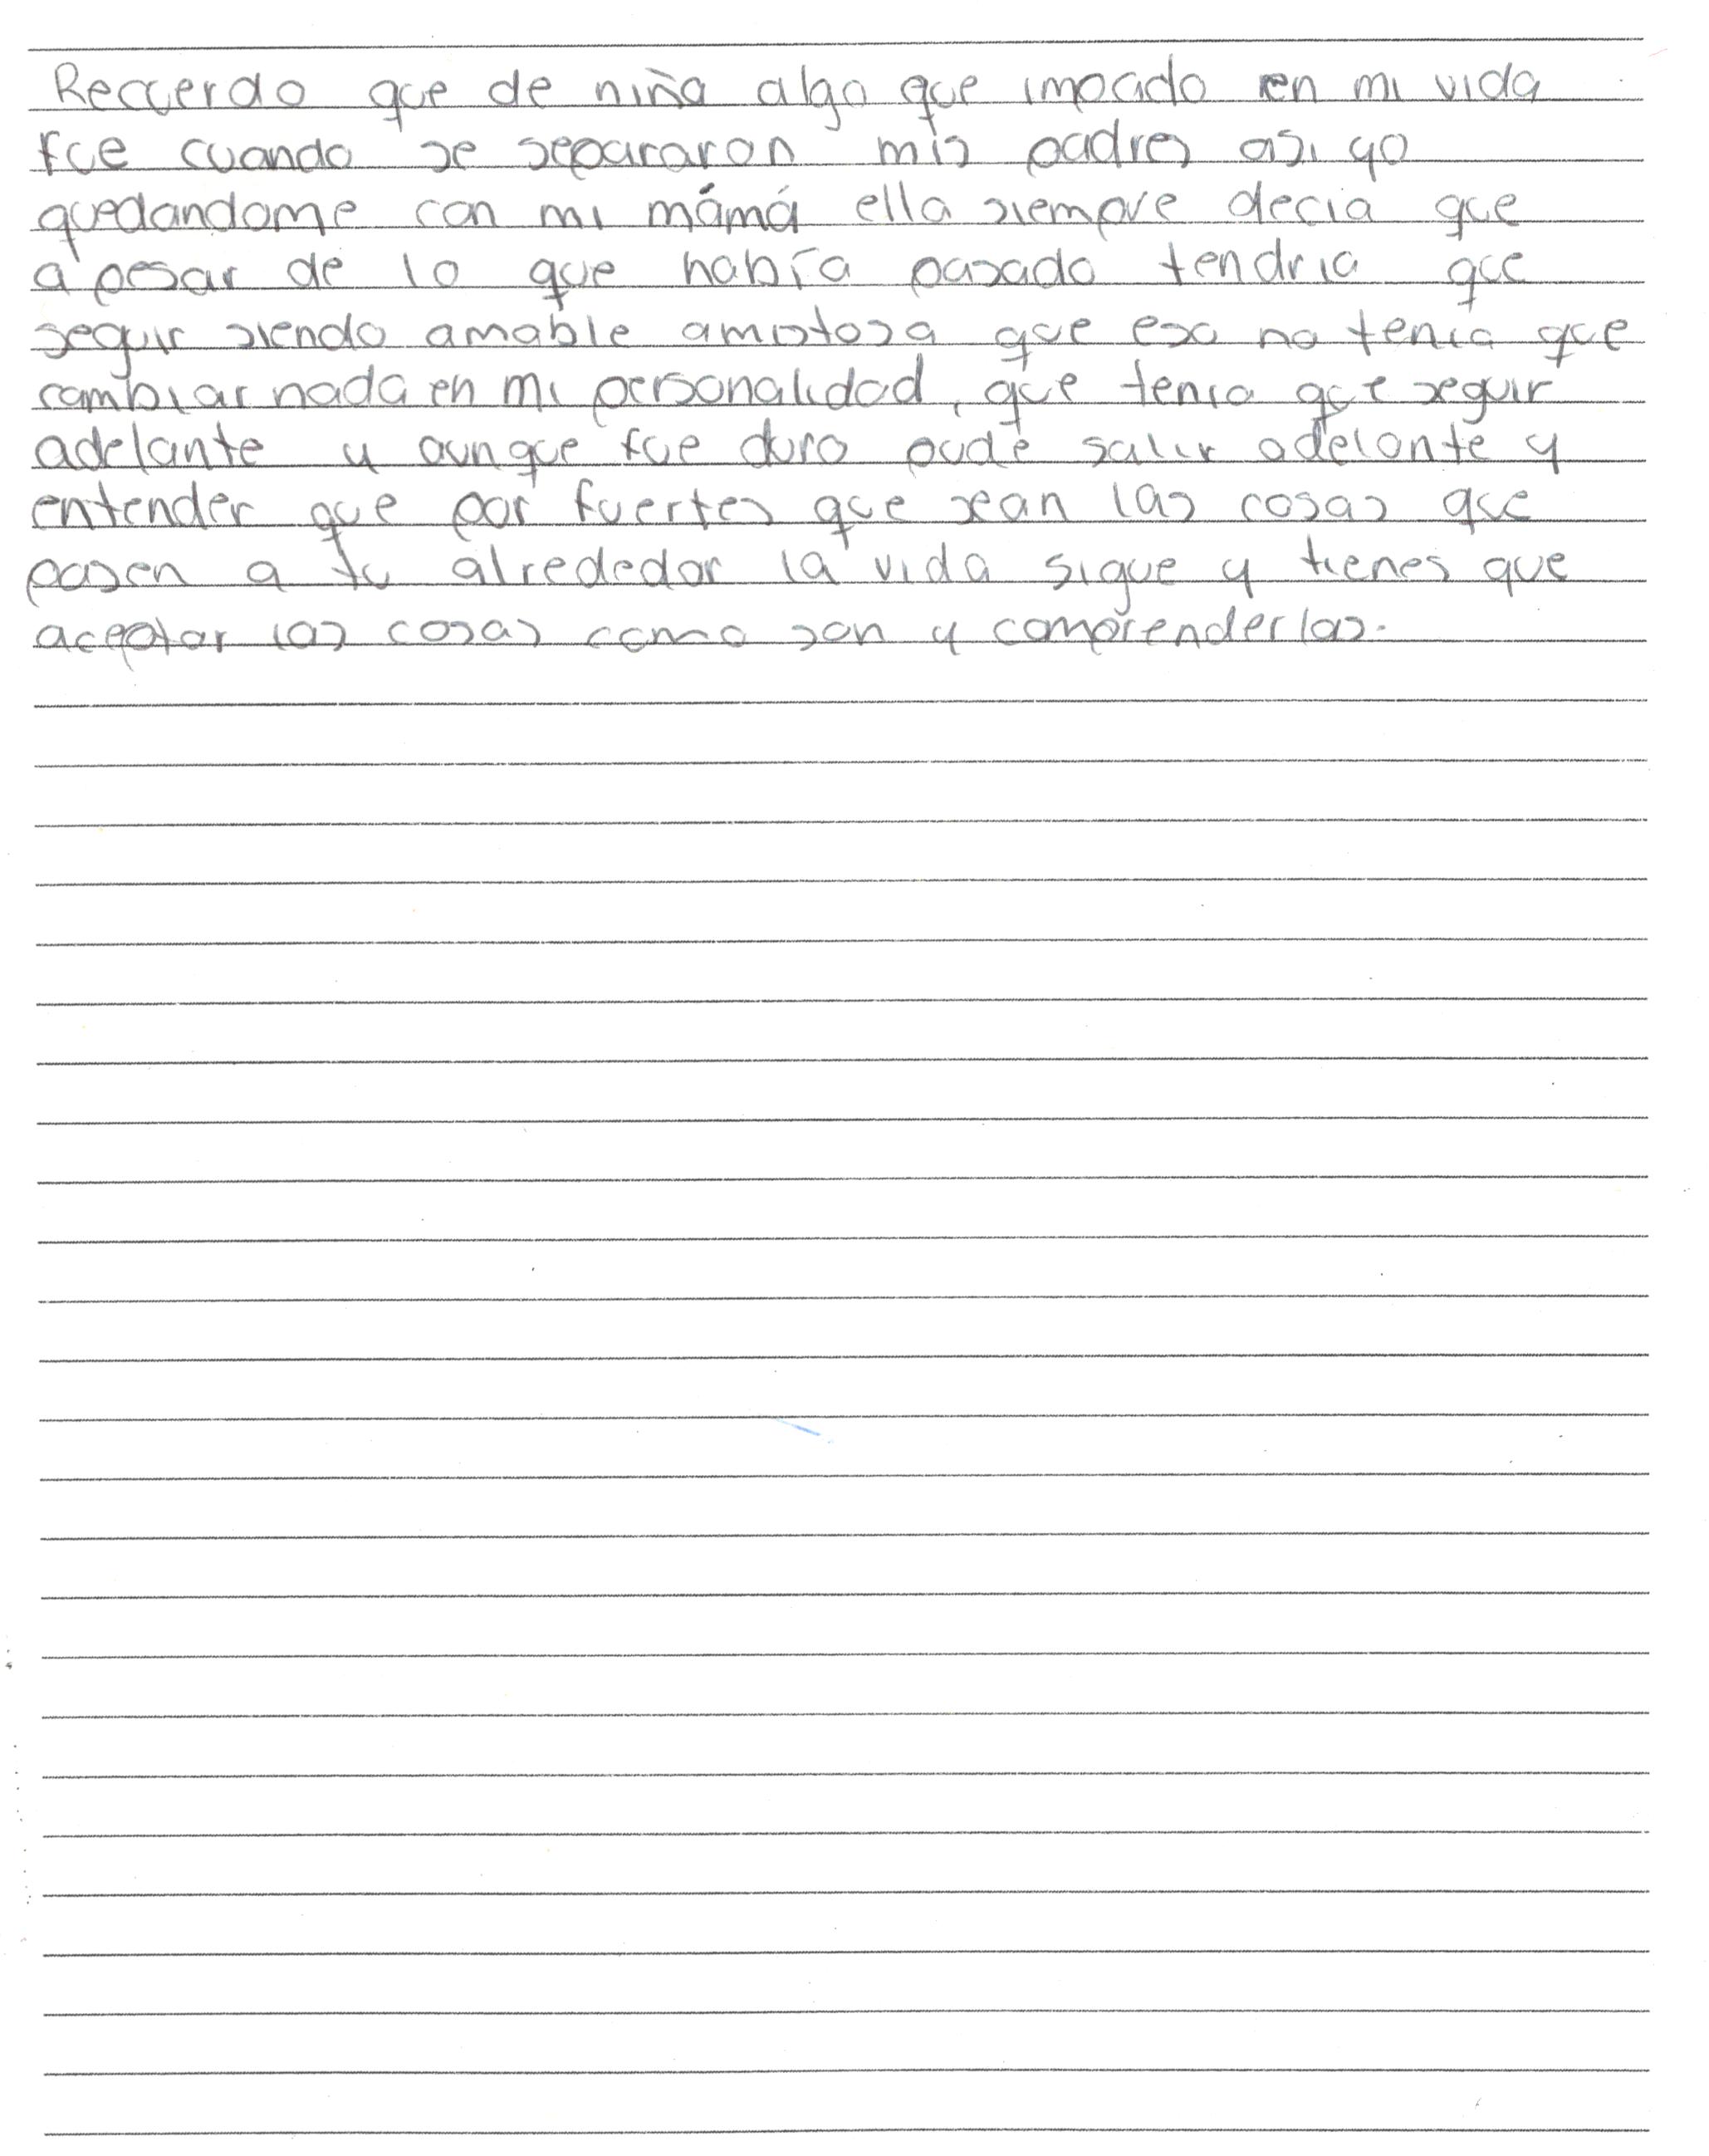 Recuerdo que de niña algo que impacto en mi vida
fue cuando se separaron mis padres asi yo
quedandome con mi mámá ella siempre decia que
a pesar de lo que había pasado tendria que
seguir siendo amable amistosa que eso no tenia que
cambiar nada en mi personalidad, que tenia que seguir
adelante y aunque fue duro pude salir adelante y
entender que por fuertes que sean las cosas que
pasen a tu alrededor la vida sigue y tienes que
aceptar las cosas como son y comprenderlas.